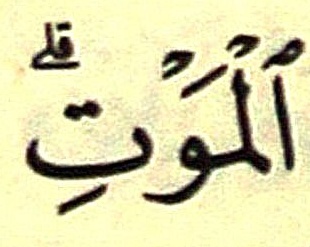 ٱلْمَوْتِۗ